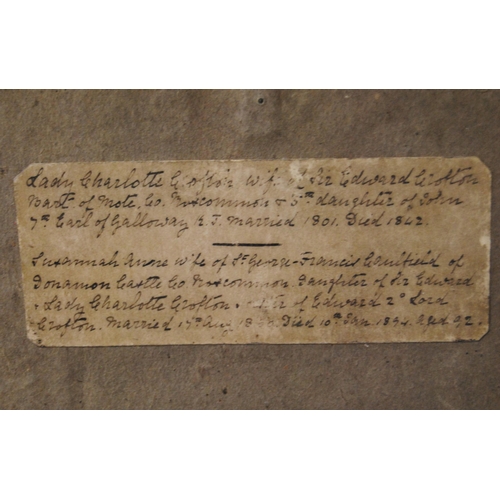 Lady Charlotte Crofton wife of Sir Edward Crofton
Bart of Mote, Co. Roscommon & 5th daughter of John
7th Earl of Galloway K.T. Married 1801. Died 1842.
Susannah Anne wife of St George-Francis Caulfield of
Donamon Castle Co Roscommon. Daughter of Sir Edward
& Lady Charlotte Crofton. sister of Edward 2d Lord
Crofton. Married Aug Died 10th Jan. 1894. aged 92.